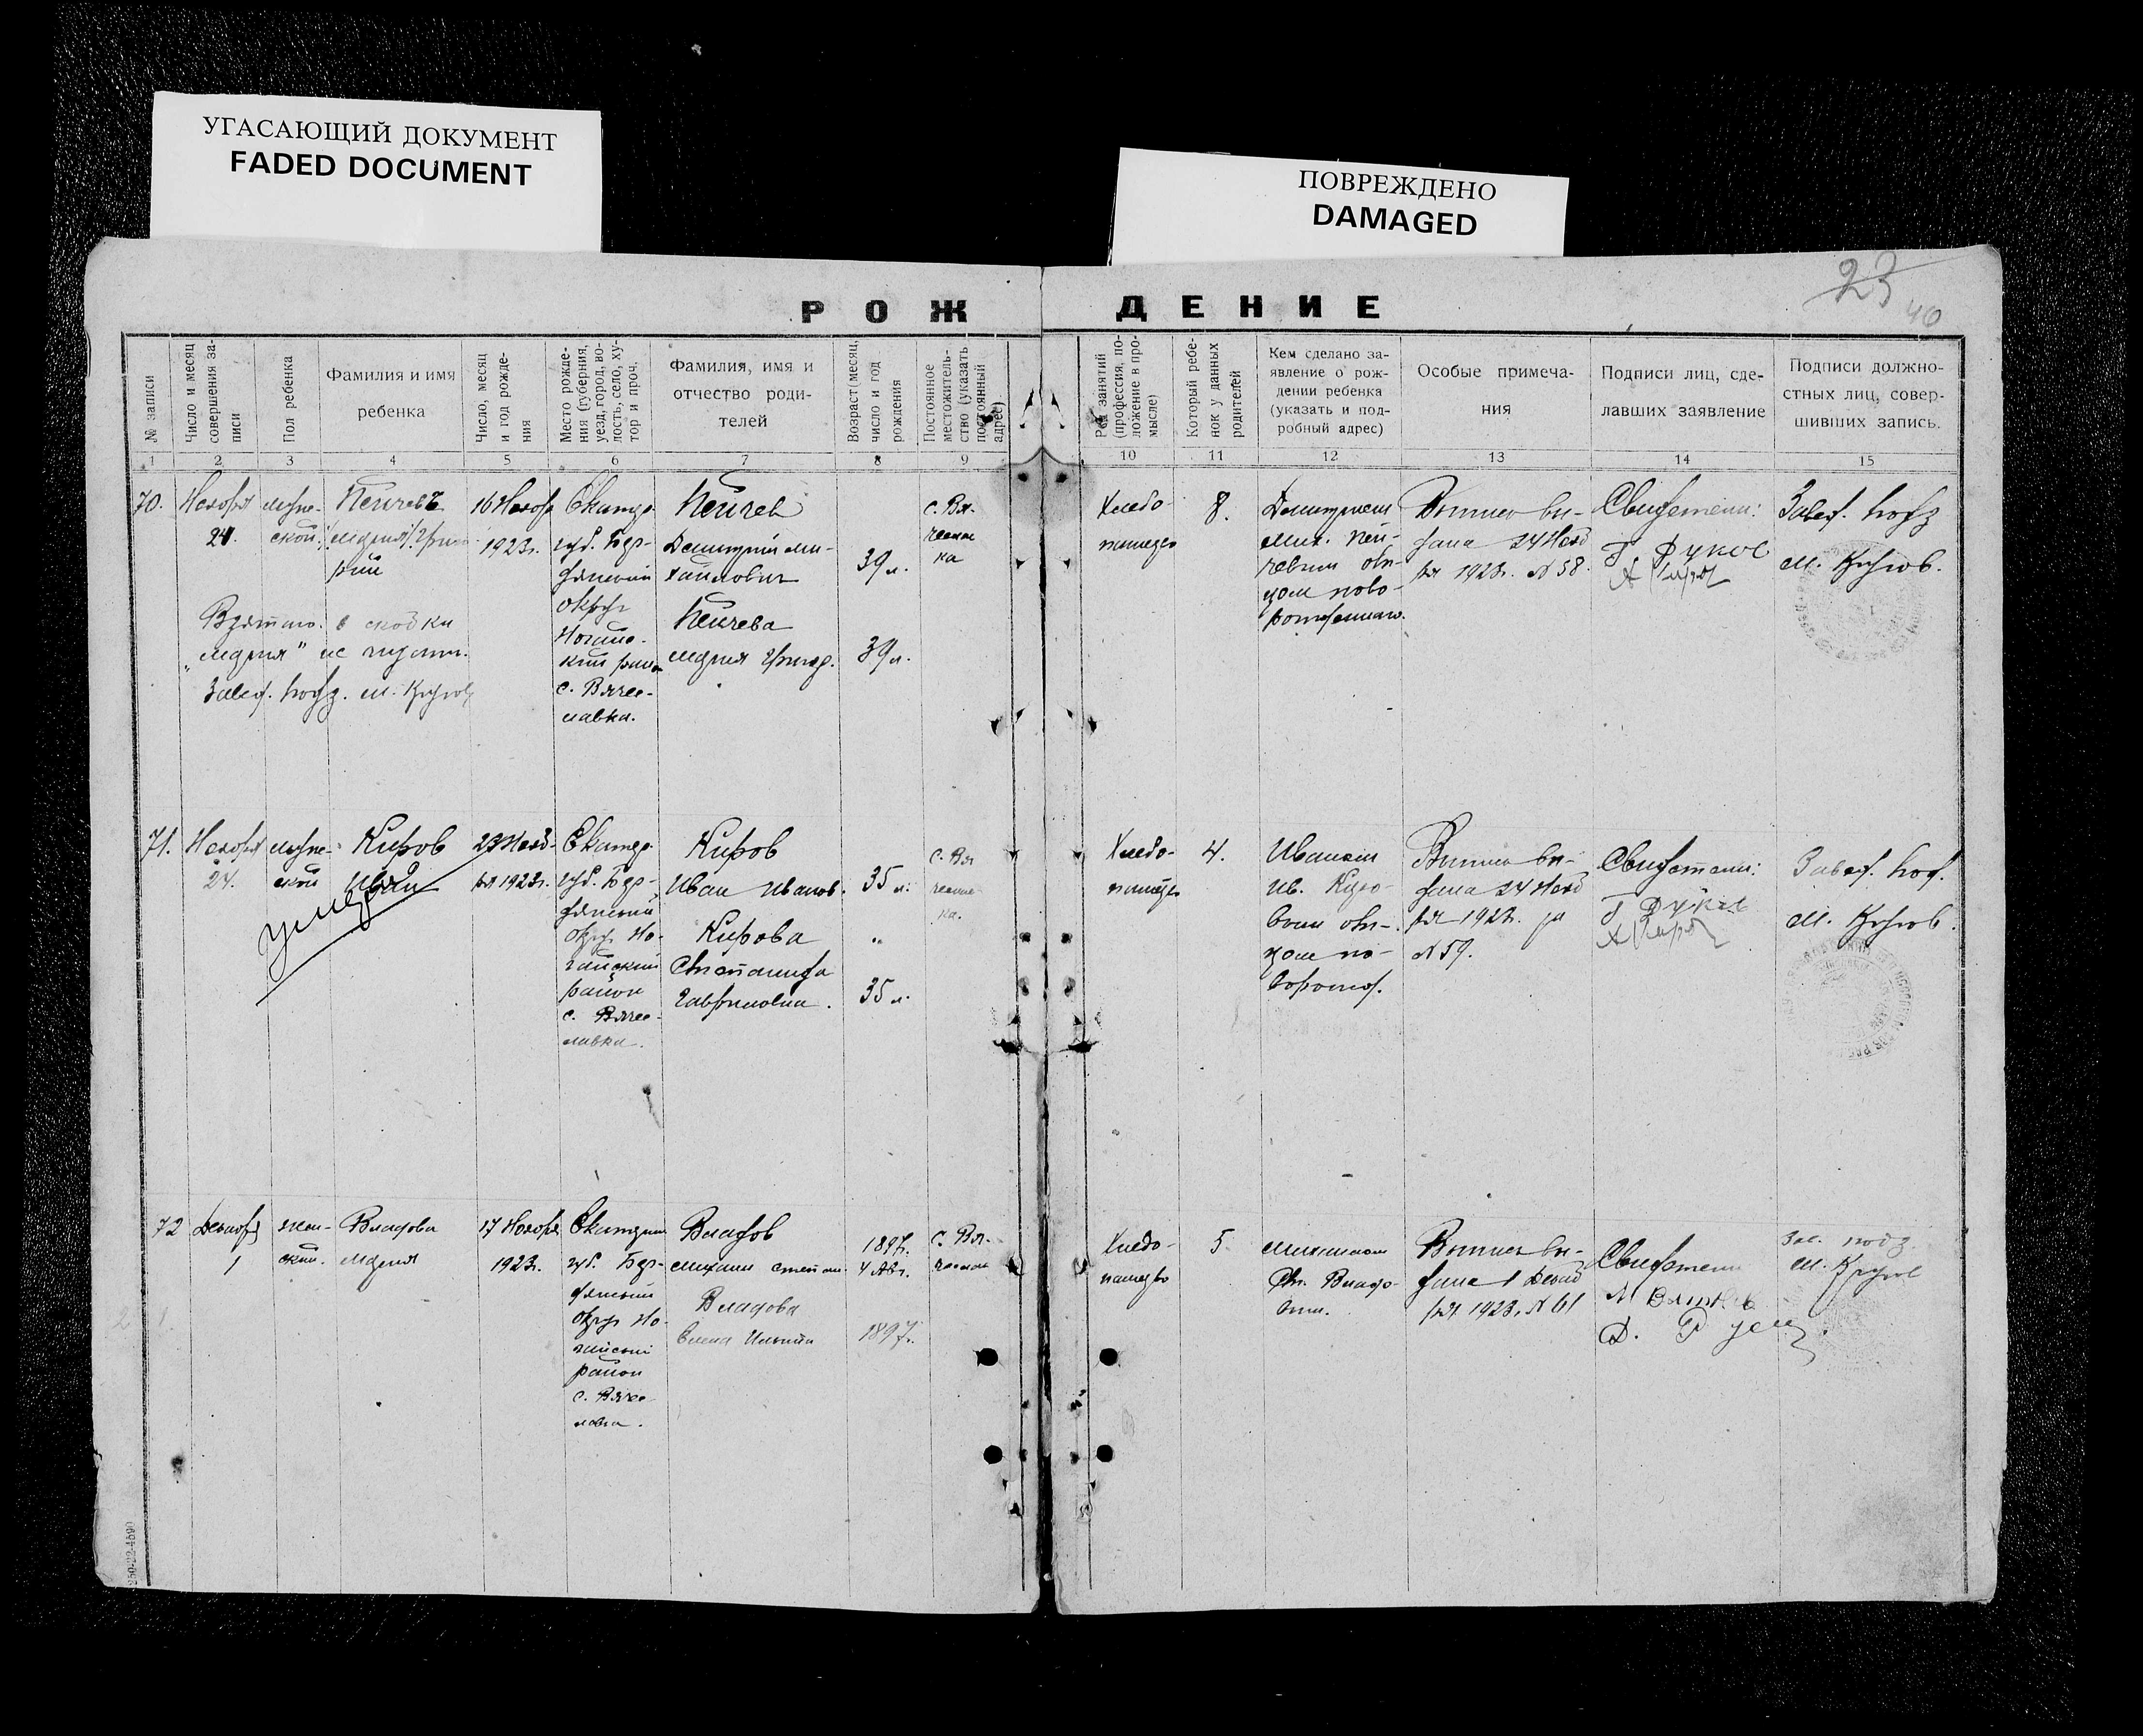 УГАСАЮЩИЙ ДОКУМЕНТ
FADED DOCUMENT
ПОВРЕЖДЕНО
DAMAGED
23
40
РОЖДЕНИЕ
№ записи
Число и месяц
совершения за-
писи
Пол ребенка
Фамилия и имя
ребенка
Число, месяц
и год рожде-
ния
Место рожде-
ния (губерния,
уезд, город, во-
лость, село, ху-
тор и проч.
Фамилия, имя и
отчество роди-
телей
Возраст (месяц,
число и год
рождения
Постоянное
местожитель-
ство (указать
постоянный
адрес)
Род занятий
(профессия, по-
ложение в про-
мысле)
Который ребе-
нок у данных
родителей
Кем сделано за-
явление о рож-
дении ребенка
(указать и под-
робный адрес)
Особые примеча-
ния
Подписи лиц, сде-
лавших заявление
Подписи должно-
стных лиц, совер-
шивших запись.
1 2 3 4 5 6 7 8 9 10 11 12 13 14 15
70.
Ноября
24.
муже-
ской
Пейчевъ
16 Ноябр
1923г.
Екатер.
губ. Бер-
дянский
округ
Ногайс-
кий район
с. Вячес-
лавка.
Пейчев
Димитрий Ми-
хайлович
39 л.
Пейчева
Мария Григор.
39 л.
с. Вя-
чеслав
ка
Взятого в скобки
„Мария" не читать.
Завед. подз. М.
Хлебо-
пашец
8.
Димитрием
Мих. Пей-
чевым от-
цом ново-
рожденного.
Выпись вы-
дана 24 Нояб
ря 1923г. № 58.
Свидетели:
Завед. подз
М.
71.
Ноября
24.
муже-
ской
Киров
Иван
умер
23 Нояб-
ря 1923г.
Екатер.
губ. Бер-
дянский
округ Но-
гайский
район
с. Вячес-
лавка.
Киров
Иван Иванов.
35 л.
Кирова
Степанида
Гавриловна.
35 л.
с. Вя
чеслав-
ка.
Хлебо-
пашец
4.
Иваном
Ив. Киро-
вым от-
цом но-
ворожд.
Выпись вы-
дана 24 Нояб
ря 1923г. за
№ 59.
Свидетели:
Завед. под.
М.
72
Декабря
1
жен-
ский.
Владова
Мария
17 Ноября
1923г.
Екатерин
губ. Бер-
дянский
округ Но-
гайский
район
с. Вячес-
лавка.
Владов
Михаил Степан.
1897г.
4 Авг.
Владова
Елена Ильинич
1897г.
с. Вя-
чеслав
Хлебо-
пашество
5
Михаилом
Ст. Владо-
вым.
Выпись вы-
дана 1 Декаб
ря 1923г. № 61
Свидетели
Зав. подз.
М.
250-22-4590